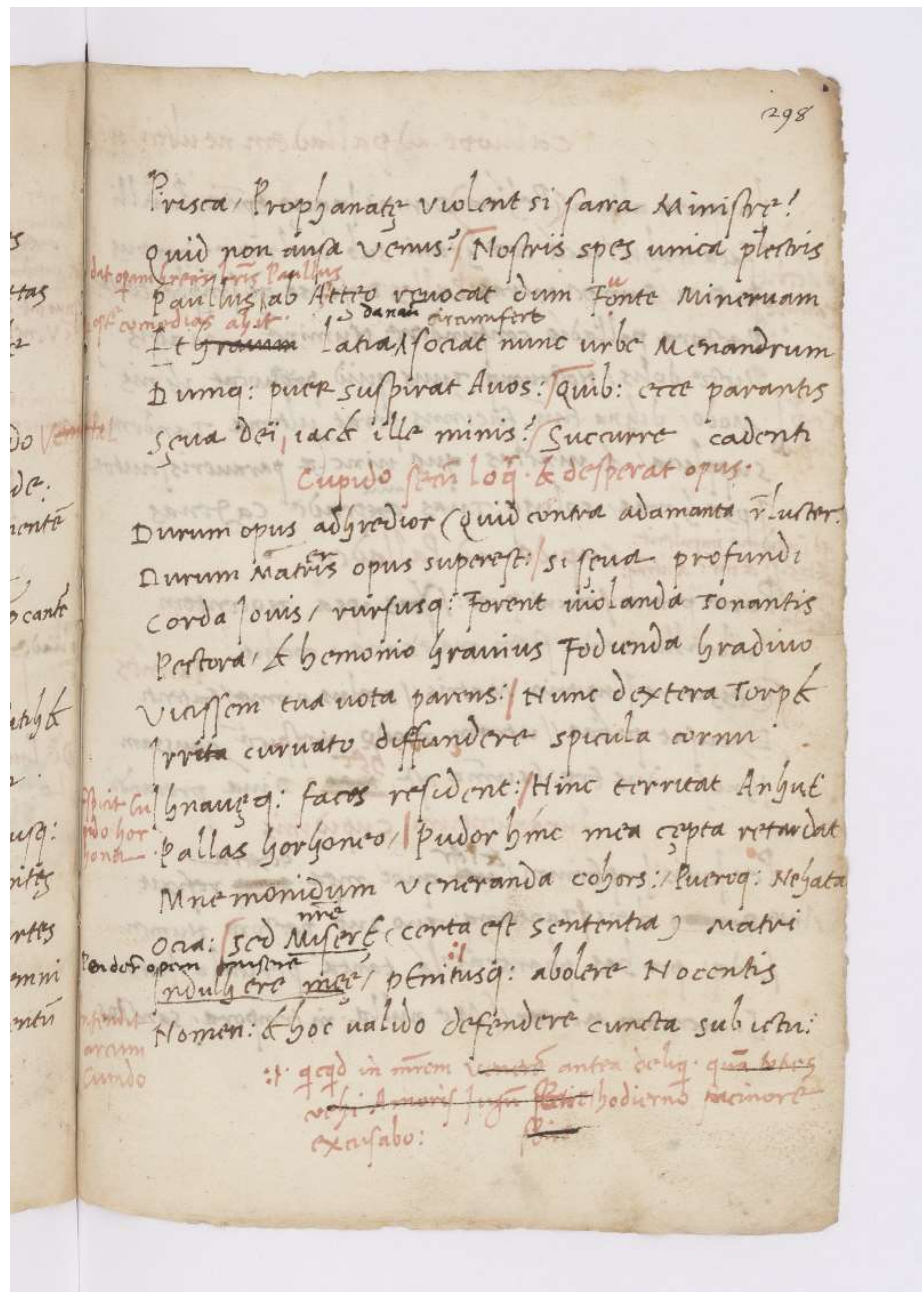 298
Prisca / Prophanatę violent si sacra Ministrę?
Quid non ausa Venus? / Nostris spes unica plectris
dat operam Paullus
Paullus, ab Atteo revocat dum Fonte Minervam
comędias
danaū circumfert
Et hravum latia sociat nunc urbe Menandrum
Dumq: puer suspirat Avos: / Quib: ecce parantis
Sęva deï, iac& ille minis? / Succurre cadenti
Cupido secū loq̄. & desperat opus.
Durum opus adhredior (Quid contra adamanta r̄lucter.
er
Durum Matris opus superest: / si sęva profundi
Corda Jovis / rursusq: Forent violanda Tonantis
Pectora / & hemonio hravius Fodienda hradivo
Vicissem tua vota parens: / Nunc dextera Torp&
Irrita curvato diffundere spicula cornu
Ihnavęq: faces resident: / Hinc territat Anhuē
Cupido hor
hona
Pallas horhoneo / Pudor hinc mea cępta retardat
Mnemonidum veneranda cohors: / Pueroq: Nehata
nr̄e
Ocia: / sed Miser& (certa est Sententia) Matri
opem misere
Indulhere męę / pEnitusq: abolere Nocentis
Nomen: & hoc valido defendere cuncta sub ictu:
arcum
Cupido
qcqd in mr̄em antea deliq. quā
Amoris hodierno facinore
excusabo: